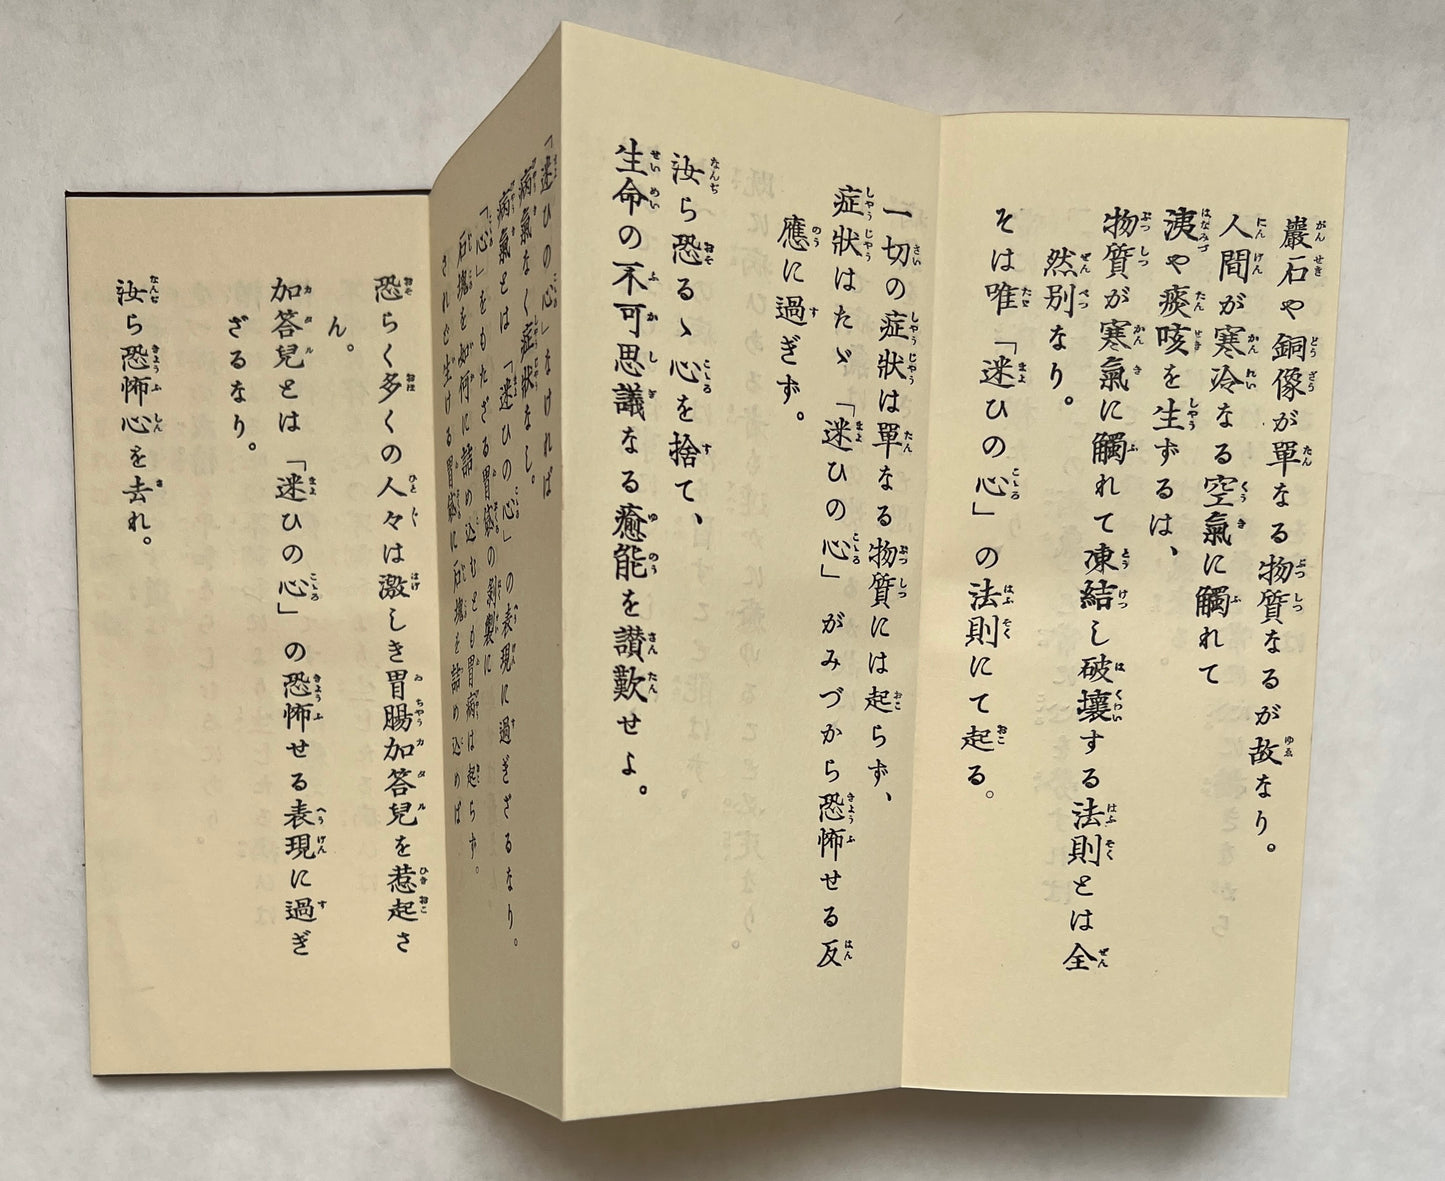 巖石や銅像が單なる物質なるが故なり。
人間が寒冷なる空氣に觸れて
洟や痰咳を生ずるは、
物質が寒氣に觸れて凍結し破壞する法則とは全
然別なり。
そは唯「迷ひの心」の法則にて起る。
一切の症狀は單なる物質には起らず、
症狀はたゞ「迷ひの心」がみづから恐怖せる反
應に過ぎず。
汝ら恐るゝ心を捨て、
生命の不可思議なる癒能を讃歎せよ。
「迷ひの心」なければ
病氣なく症狀なし。
病氣とは「迷ひの心」の表現に過ぎざるなり。
「心」をもたざる胃袋の剝製に
石塊を如何に詰め込むとも胃病は起らず。
されど生ける胃袋に石塊を詰め込めば
恐らく多くの人々は激しき胃腸加答兒を惹起さ
ん。
加答兒とは「迷ひの心」の恐怖せる表現に過ぎ
ざるなり。
汝ら恐怖心を去れ。